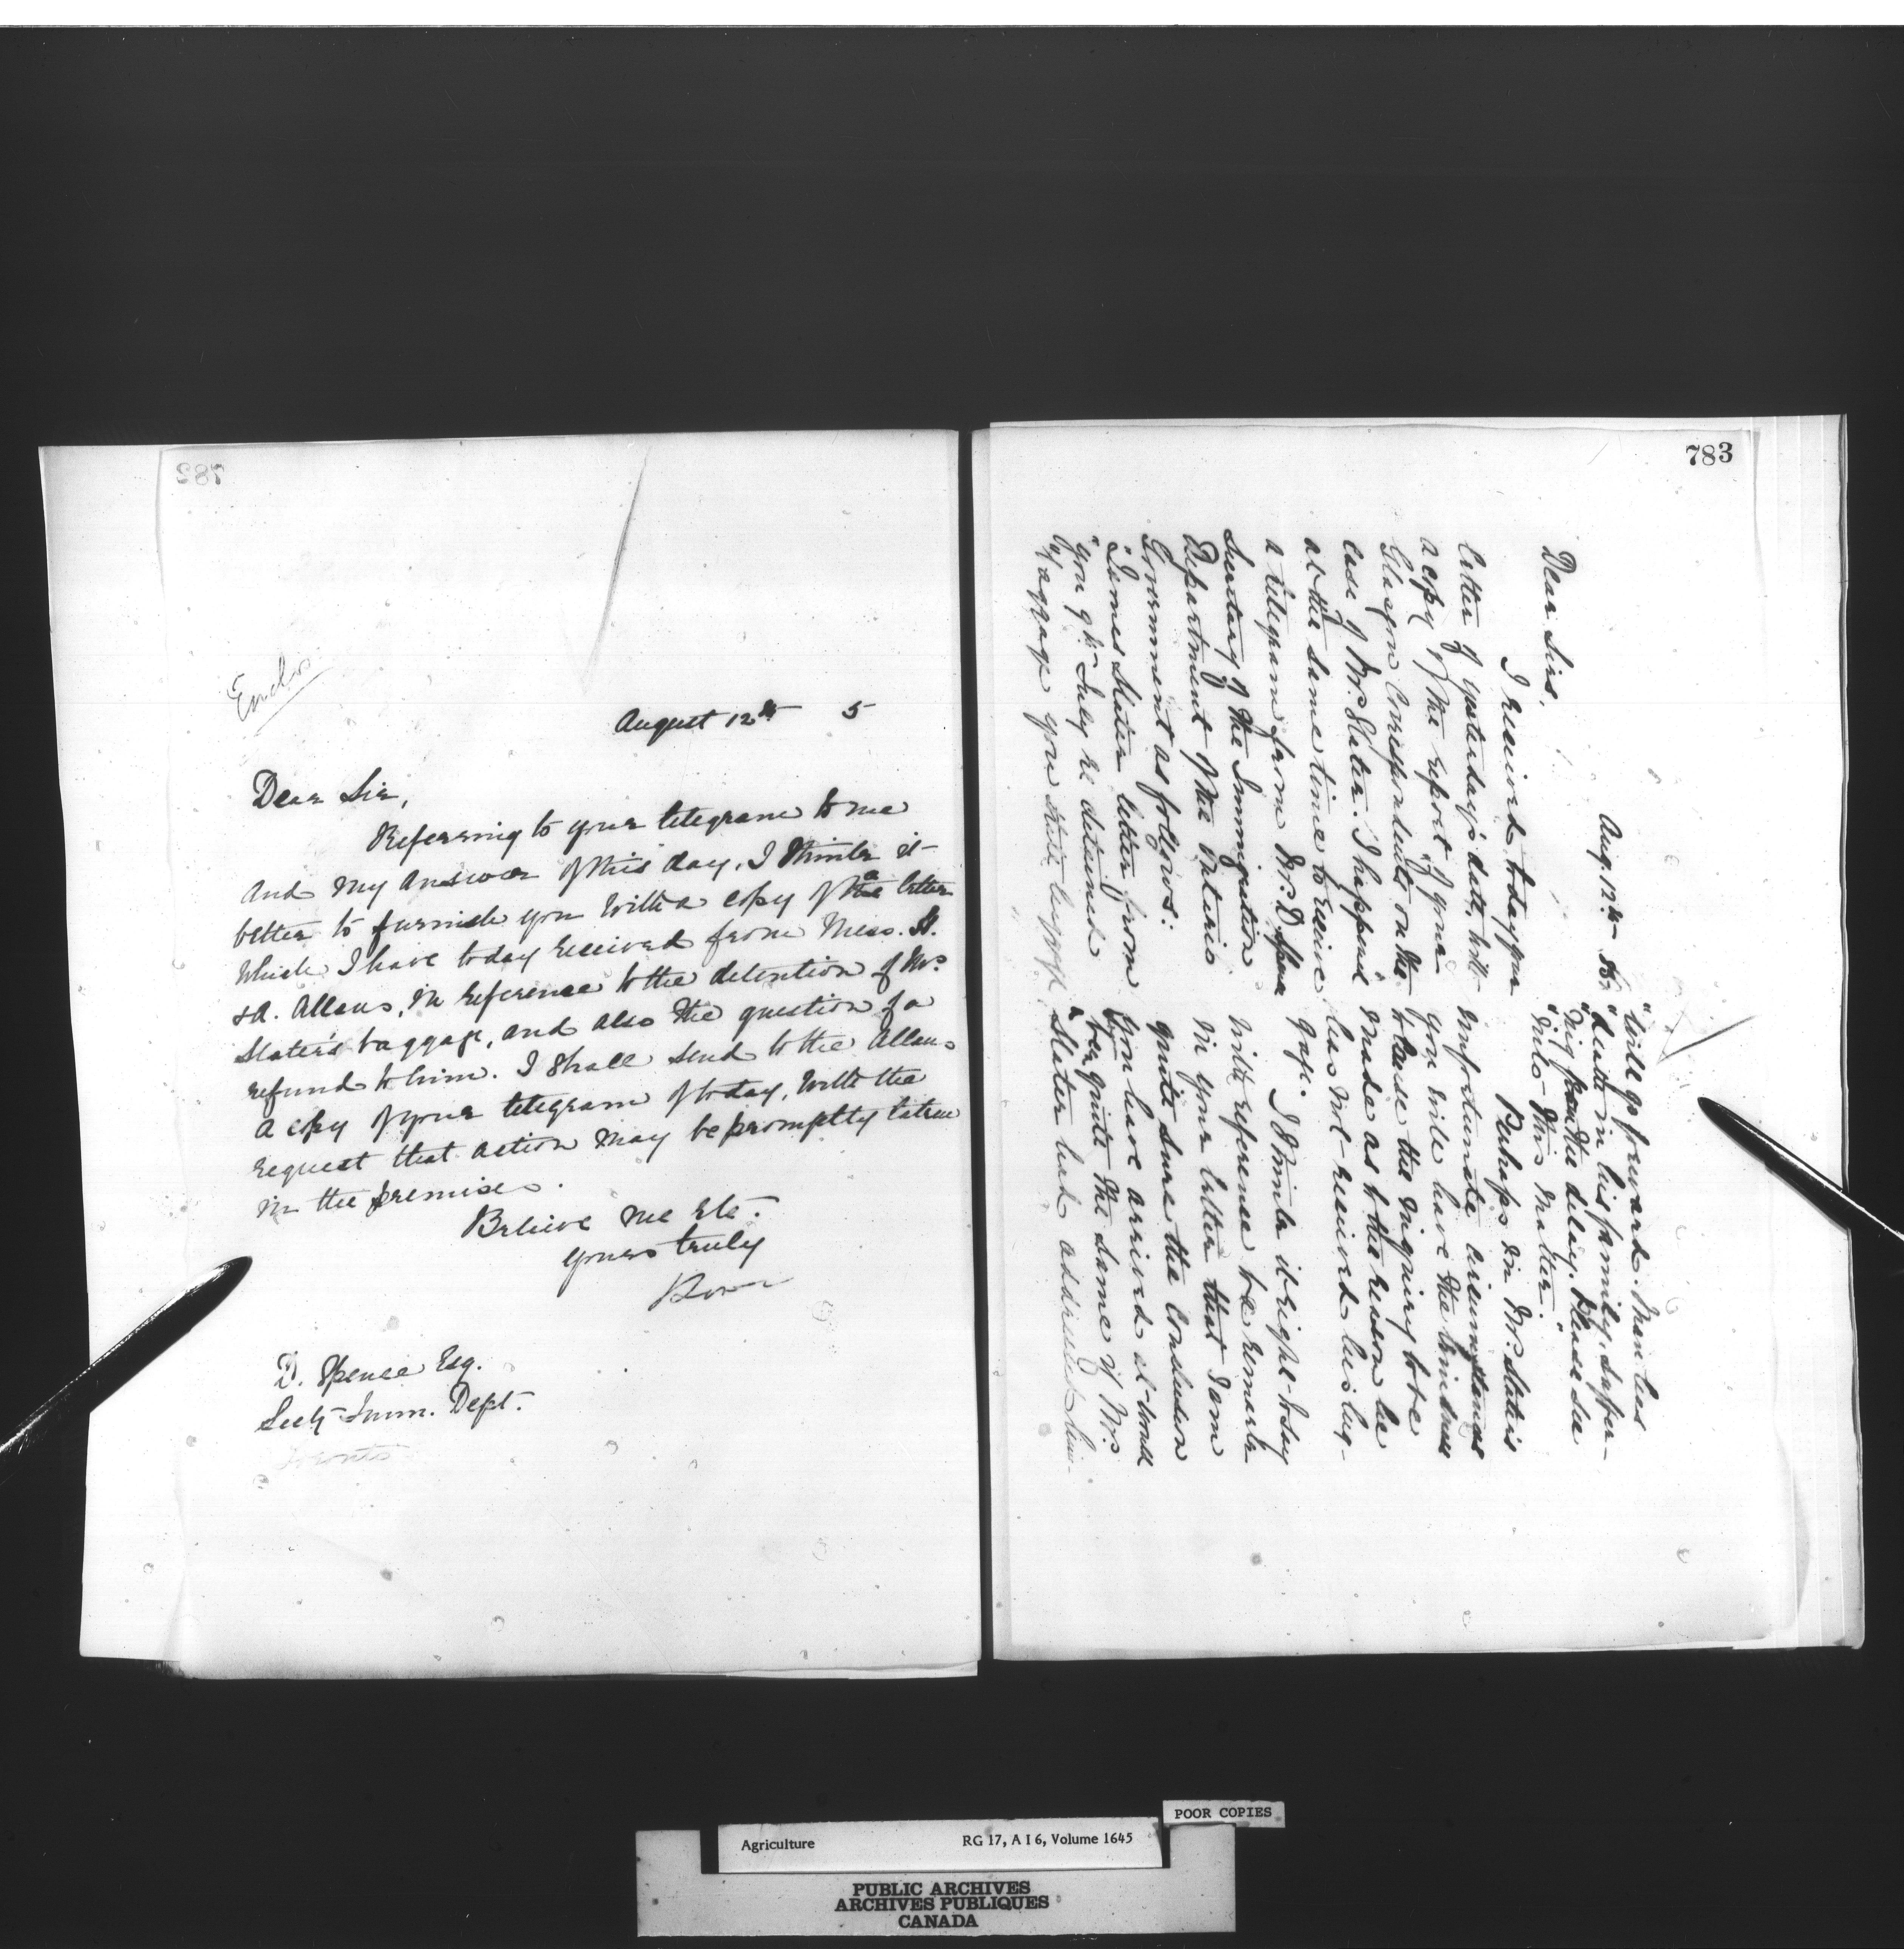 Enclo
August 12th 5
Dear Sir,
Referring to your telegram to me
and my answer of this day, I think it
better to furnish you with a copy of the letter
which I have today received from Mess. H.
& A. Allans, in reference to the detention of Mr.
Slater's baggage, and also the question of a
refund to him. I shall send to the Allans
a copy of your telegram of today, with the
request that action may be promptly taken
in the premises.
Believe me etc.
yours truly
D. Spence Esq.
Secty Imm. Dept.
Toronto
783
Aug. 12th 85
Dear Sirs,
I received today your
letter of yesterday's date, with
a copy of the report of your
Glasgow Correspondents on the
case of Mr. Slater. I happened
at the same time to receive
a telegram from Mr. D. Spence
Secretary of the Immigration
Department of the Ontario
Government as follows:
"James Slater letter from
"you 9th July re detained
"baggage you state luggage
"will go forward. Man lies
"death in his family, suffer-
"ing from the delay. Please see
"into this matter."
Perhaps in Mr. Slater's
unfortunate circumstances
you will have the kindness
to cause the inquiry to be
made as to the reason he
has not received his lug-
gage.
I think it right today
with reference to a remark
in your letter that I am
quite sure the conclusion
you have arrived at would
be quite the same if Mr.
Slater had addressed him-